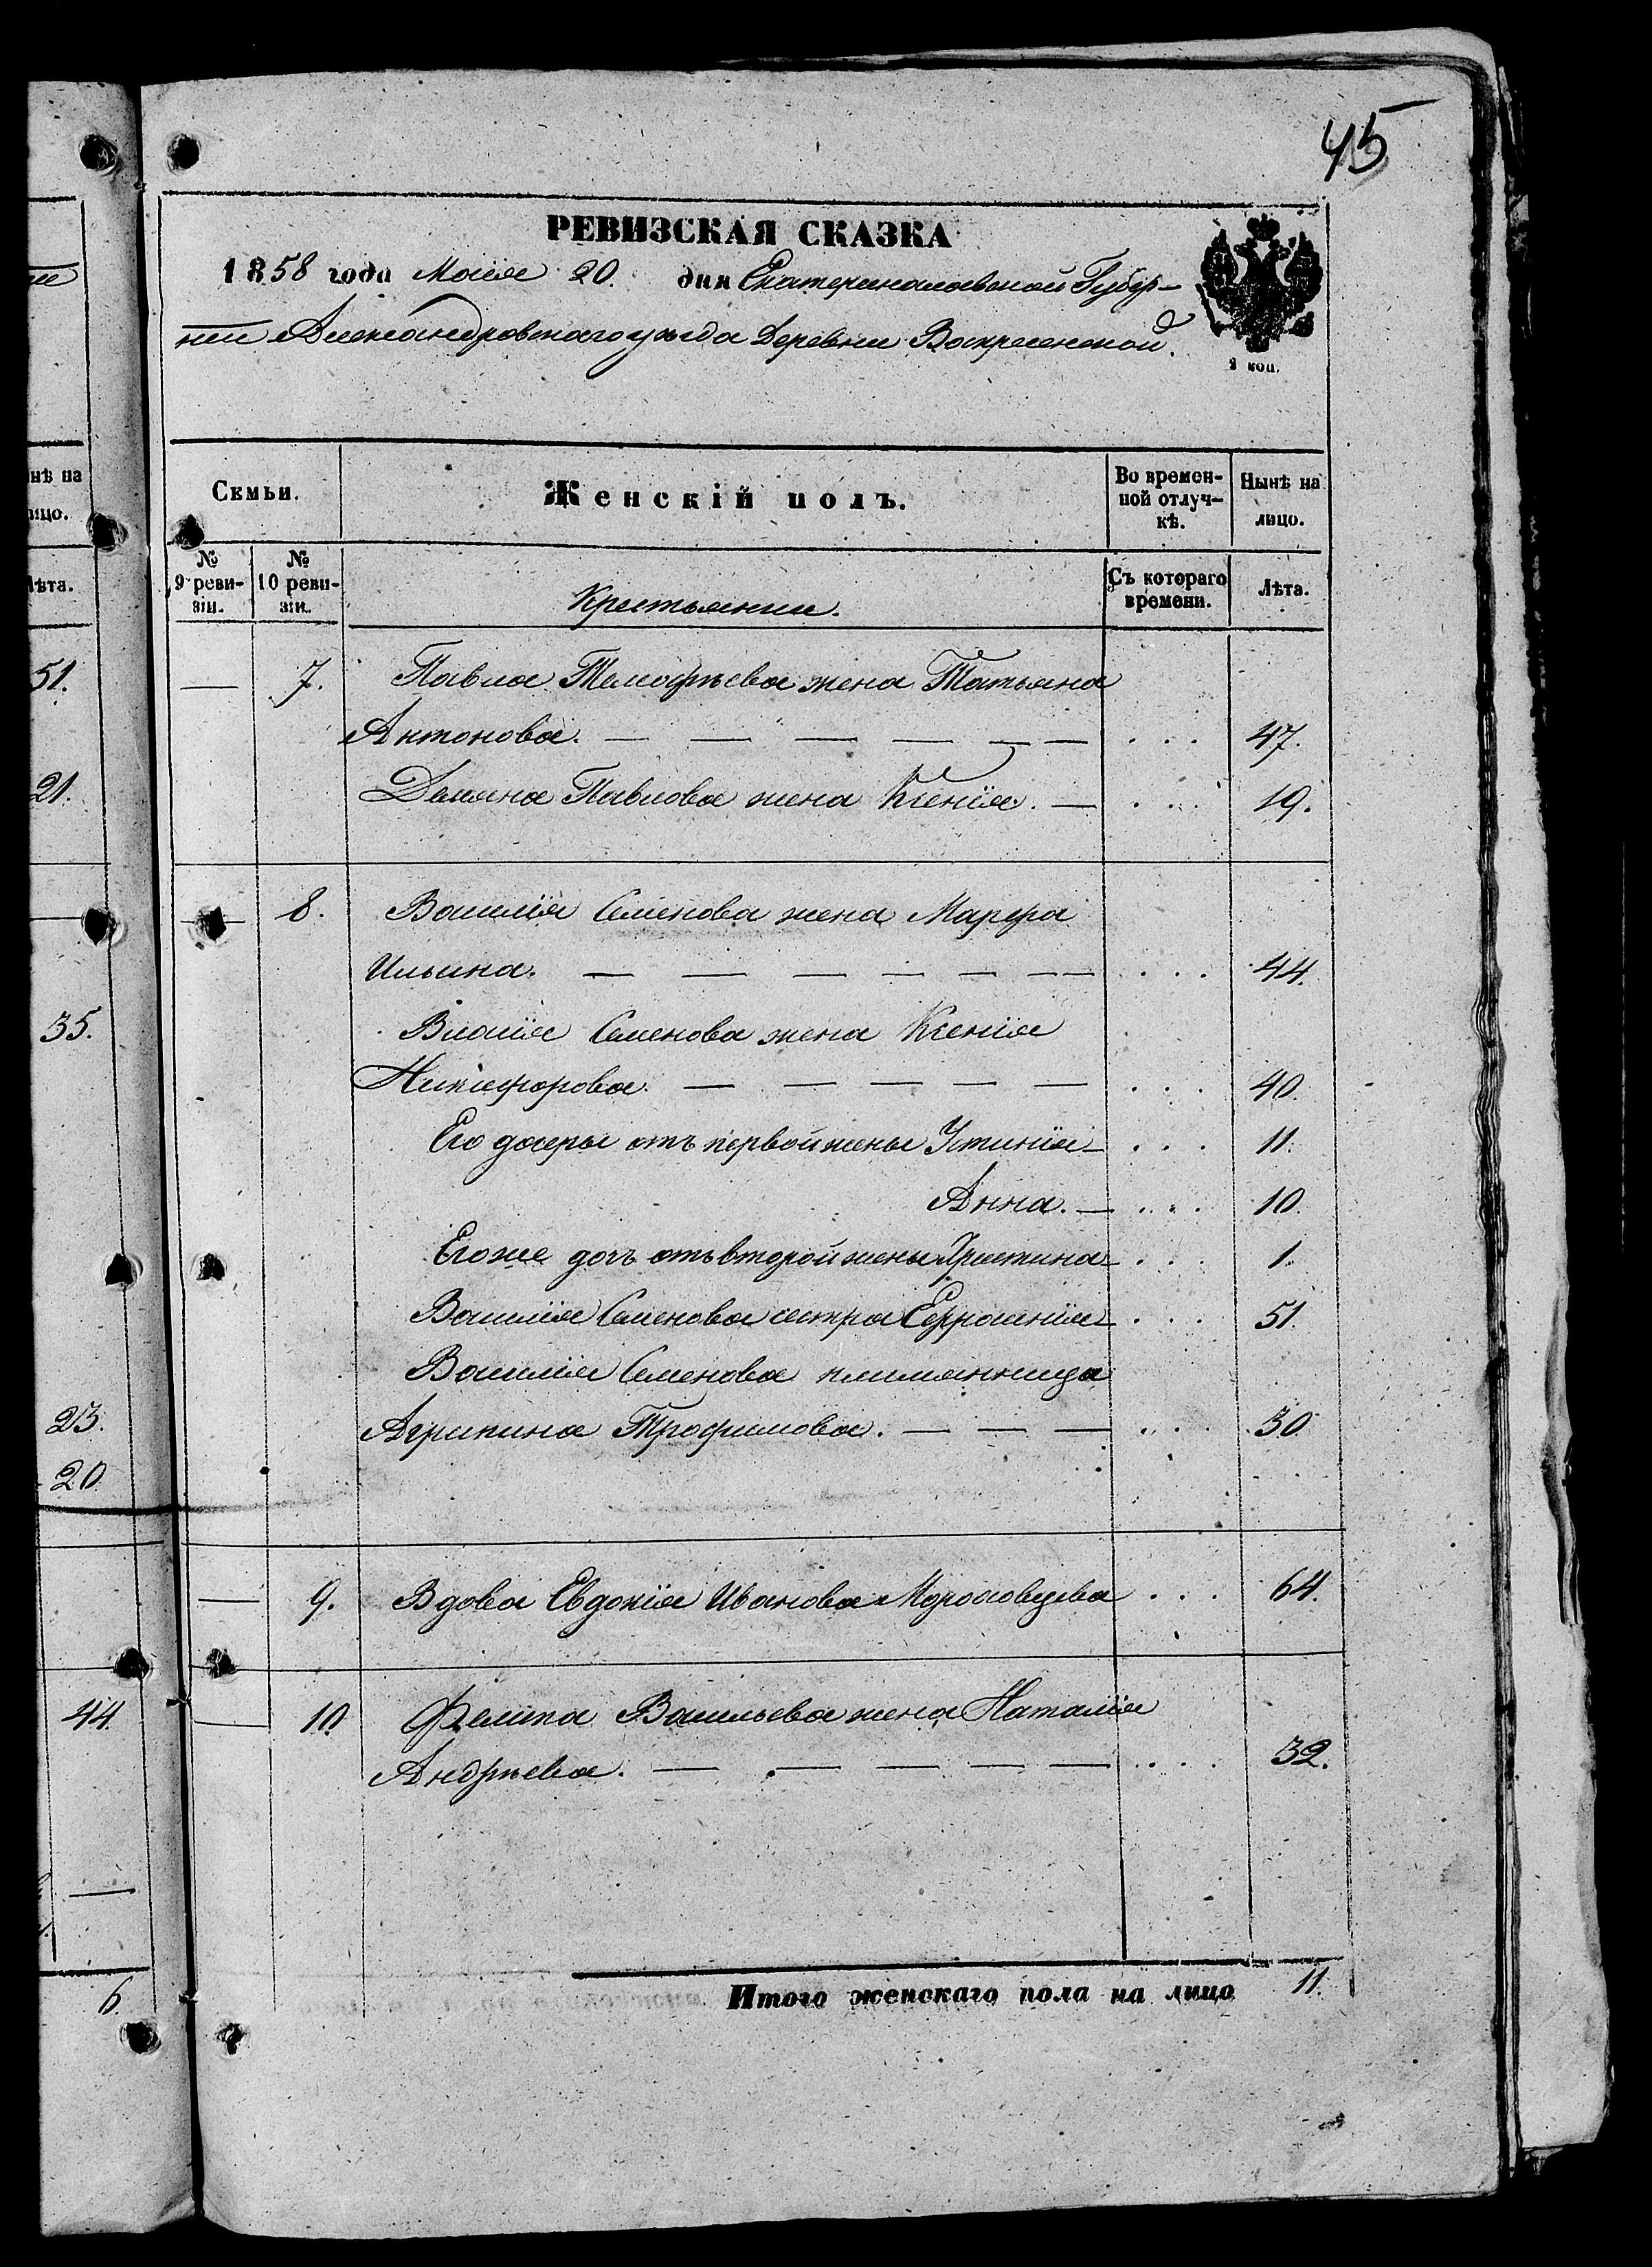 45
РЕВИЗСКАЯ СКАЗКА
1858 года Маія 20. дня Екатеринославской Губер-
ніи Александровскаго уѣзда Деревни Воскресенской.
2 коп.
нѣ на
ицо.
Семьи.
Женскій полъ.
Во времен-
ной отлуч-
кѣ.
Нынѣ на
лицо.
лѣта.
№
9 реви-
зіи.
№
10 реви-
зіи.
Крестьянки.
Съ котораго
времени.
Лѣта.
51.
— 7. Павла жена Татьяна
Антонова. — — — — — — . . . 47.
21.
Демяна Павлова жена Ксенія. — . . . 19.
— 8. Василія Семенова жена Марфа
Ильина. — — — — — — — . . . 44.
35.
Власія Семенова жена Ксенія
Никифорова. — — — — — . . . 40.
Его дочеры отъ первой жены Устинія — . . . 11.
Анна. — . . . 10.
Егоже дочъ отъ второй жены Христина — . . . 1.
Василія Семенова сестра Ефросинія — . . . 51.
Василія Семенова племянница
23.
Агрипина Трофимова. — — — . . . 30
20
— 9. Вдова Евдокія Иванова . . . 64.
44.
— 10 Филипа Васильева жена Наталія
Андрѣева. — — — — — . . . 32.
6.
Итого женскаго пола на лицо 11.